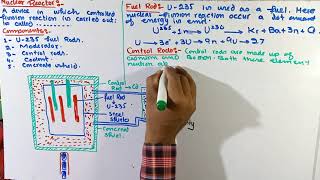 Nuclear Reactor:-
A device in which controlled
fission reaction carried out:
is called
Components:-
1. U-235 fuel
2. Moderator.
3. Control rods.
4. Coolant.
5. shield
Control
Rod → Cd
Fuel Rod
U-235
Steel
Shield
Concrete
Shield
Fuel Rods:- U-235 is used as a fuel. Here
nuclear fission reaction occur a lot amount
of energy is
U → 3n + 3U → 9n + 9U → 27
Control Rods:- Control rods are made up of
cadmium and Boron. Both these element